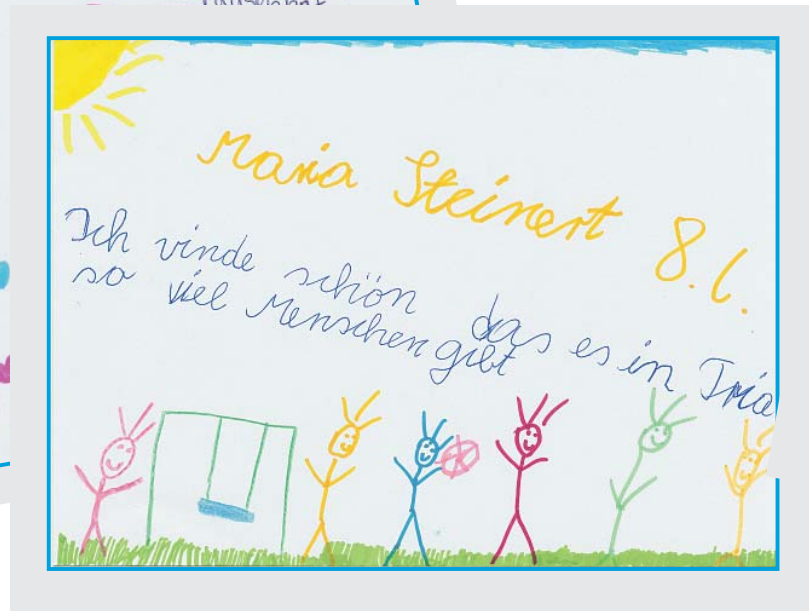 Maria Steinert 8. J.
Ich vinde schön das es in Tria
so viel Menschen gibt